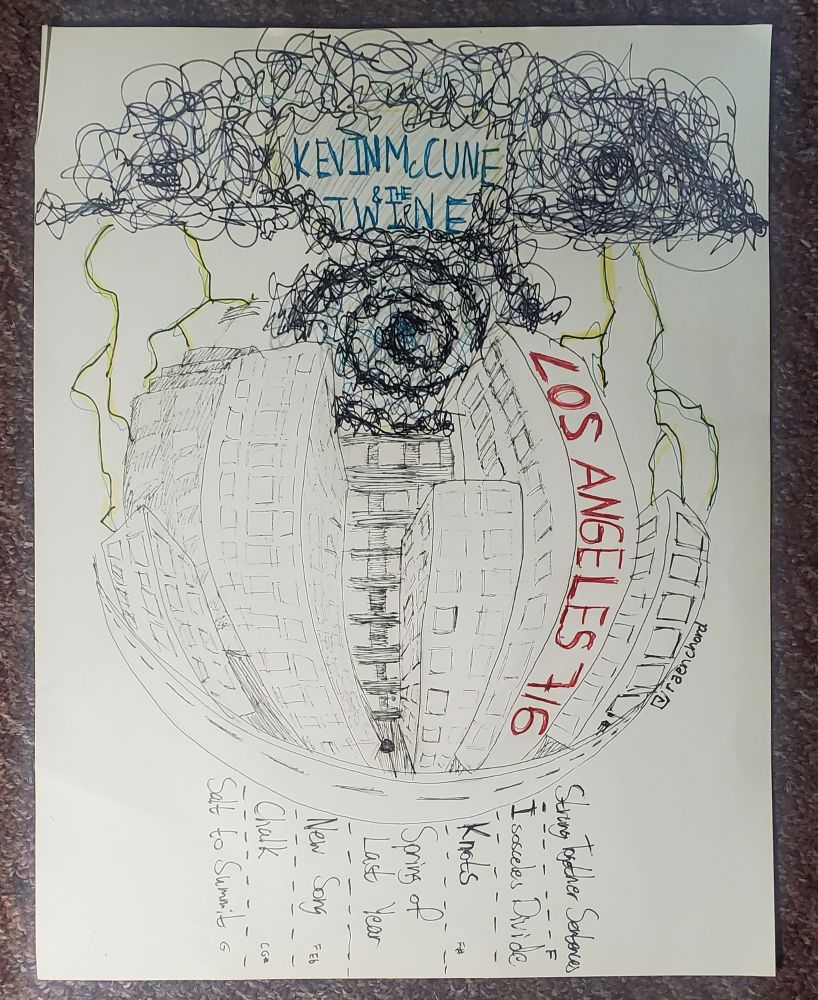 KEVIN McCUNE
& THE
TWINE
LOS ANGELES 7/6
@raenchord
String Together Sentences
F
Isosceles Divide
Knots
F#
Spring of
Last Year
New Song
F Eb
Chalk
CG#
Salt to Summit G